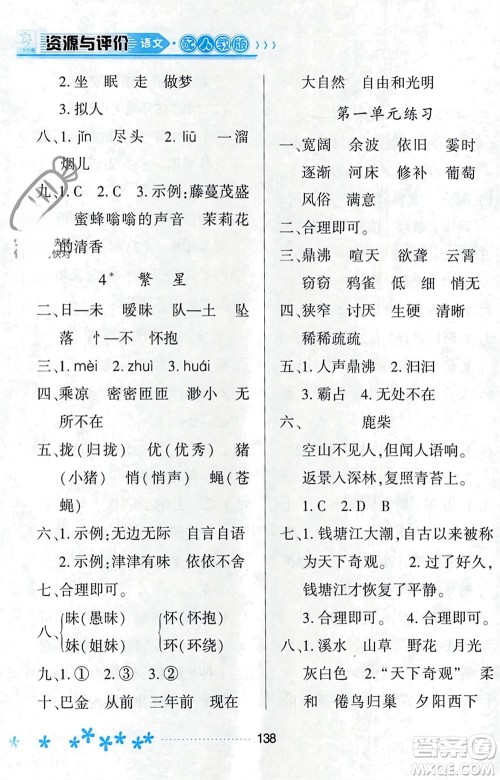 资源与评价 语文·配人教版
2.坐 眠 走 做梦
3.拟人
八、1.jǐn 尽头 2.liū 一溜
烟儿
九、1.C 2.C 3.示例:藤蔓茂盛
蜜蜂嗡嗡的声音 茉莉花
的清香
4* 繁星
二、日—未 暧昧 队—土 坠
落 忄—不 怀抱
三、1.mèi 2.zhuì 3.huái
四、乘凉 密密匝匝 渺小 无
所不在
五、拢(归拢) 优(优秀) 猪
(小猪) 悄(悄声) 蝇(苍
蝇)
六、1.示例:无边无际 自言自语
2.示例:津津有味 依依不舍
七、合理即可。
八、昧(愚昧) 怀(怀抱)
妹(姐妹) 环(环绕)
九、1.① 2.③ 3.②
十、巴金 从前 三年前 现在
大自然 自由和光明
第一单元练习
一、宽阔 余波 依旧 霎时
逐渐 河床 修补 葡萄
风俗 满意
二、合理即可。
三、鼎沸 喧天 欲聋 云霄
窃窃 鸦雀 低细 无声
四、狭窄 讨厌 生硬 清晰
稀稀疏疏
五、1.人声鼎沸 2.汩汩
3.霸占 4.无处不在
六、 鹿柴
空山不见人,但闻人语响。
返景入深林,复照青苔上。
1.C 2.D B
七、1.钱塘江大潮,自古以来被称
为天下奇观。 2.过了好久,
钱塘江才恢复了平静。
3.合理即可。
八、1.溪水 山草 野花 月光
灰白色 2.“天下奇观” 柔
和 倦鸟归林 夕阳西下
138